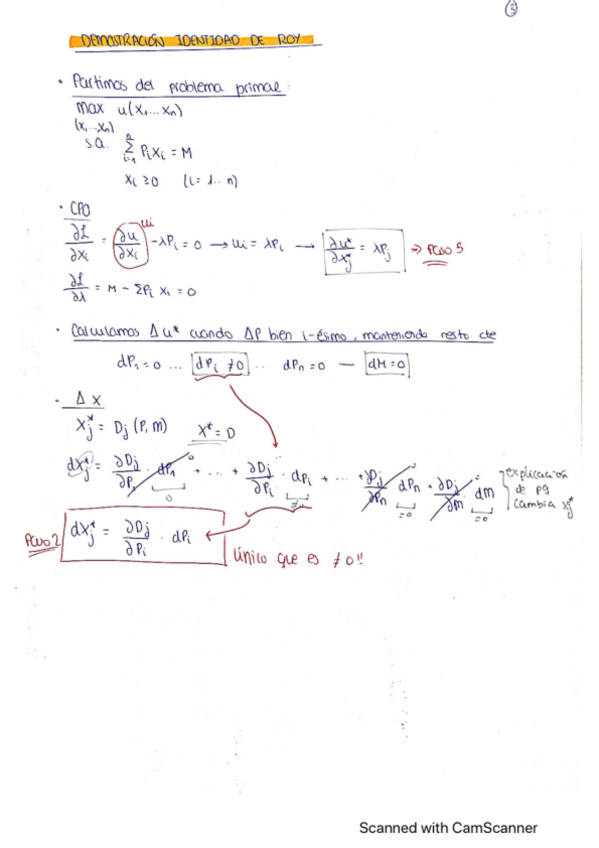 5
DEMOSTRACIÓN IDENTIDAD DE ROY
· Partimos del problema primal:
max u(x₁...xₙ)
(x₁...xₙ)
s.a. Σᵢ₌₁ⁿ Pᵢxᵢ = M
xᵢ ≥ 0 (i = 1...n)
· CPO
∂L/∂xᵢ = ∂u/∂xᵢ - λPᵢ = 0 → uᵢ = λPᵢ → ∂u*/∂xⱼ = λPⱼ → PASO 5
ui
∂L/∂λ = M - ΣPᵢ xᵢ = 0
· Calculamos Δu* cuando ΔP bien i-ésimo, manteniendo resto cte
dP₁=0 ... dPᵢ ≠0 ... dPₙ=0 — dM=0
· Δ x
xⱼ* = Dⱼ (P, m) x* = D
dxⱼ* = ∂Dⱼ/∂P₁ · dP₁ + ... + ∂Dⱼ/∂Pᵢ · dPᵢ + ... + ∂Dⱼ/∂Pₙ dPₙ + ∂Dⱼ/∂m dm
0 ≠0 =0 =0
explicación
de pq
cambia xⱼ*
PASO 2 dxⱼ* = ∂Dⱼ/∂Pᵢ · dPᵢ
Único que es ≠0!!
Scanned with CamScanner